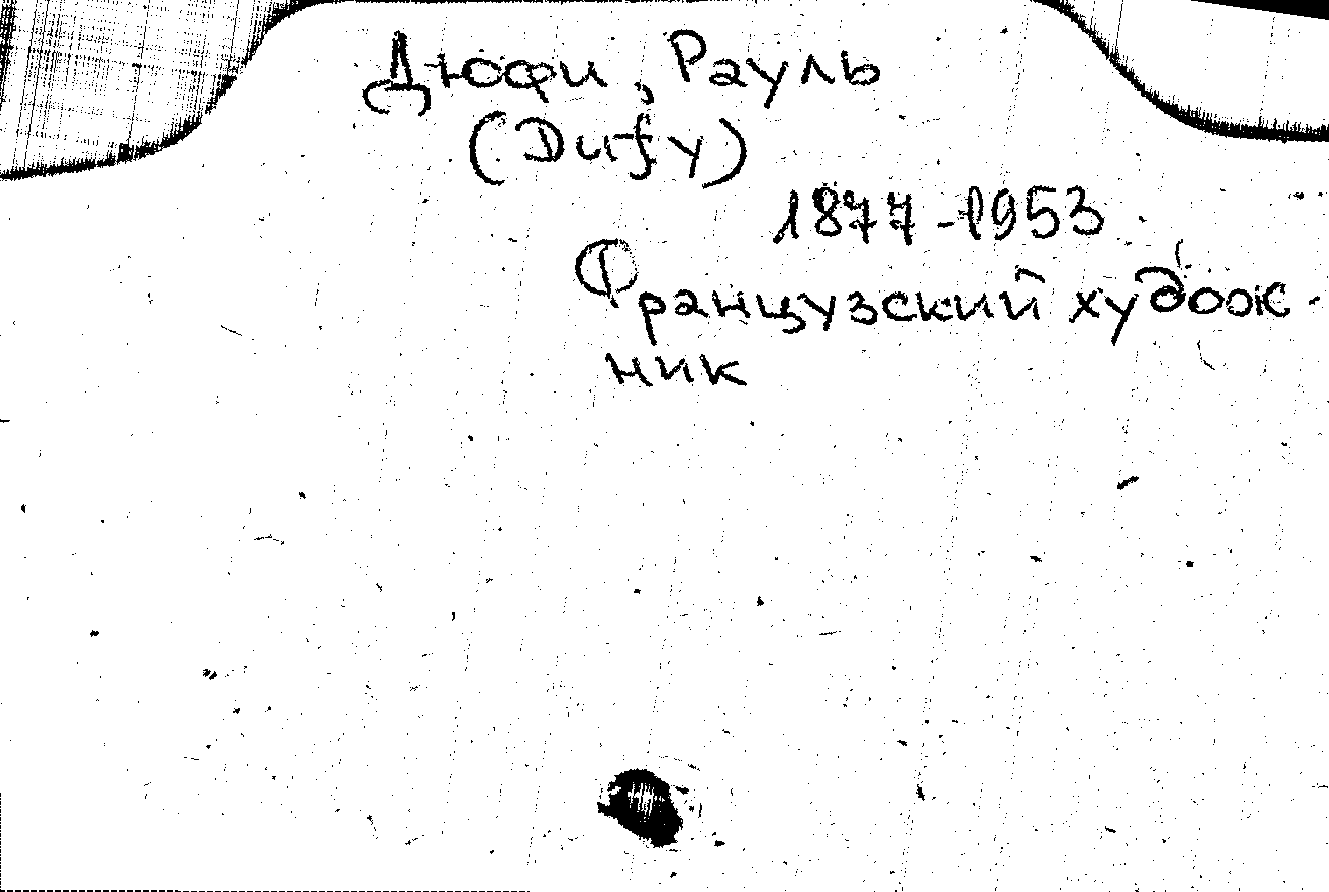 Дюфи, Рауль
(Dufy)
1877-1953
Французский худож-
ник